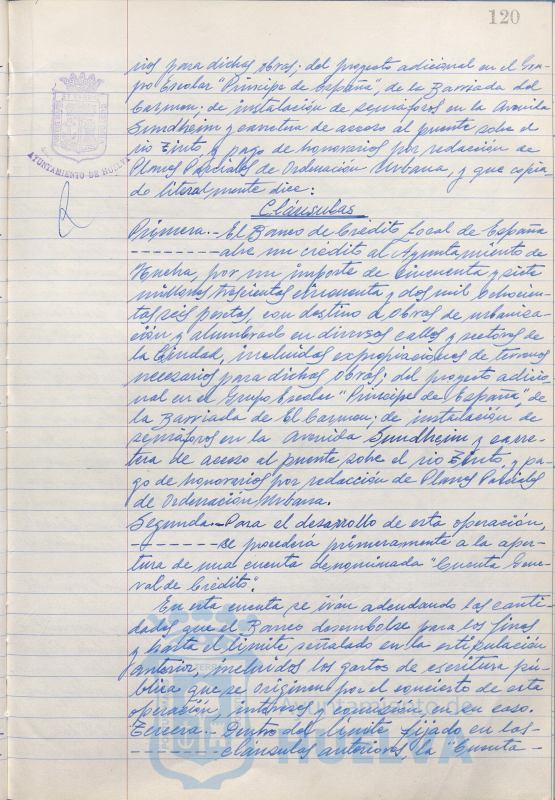 120
rios para dichas obras; del proyecto adicional en el Gru-
po Escolar "Principe de España", de la Barriada del
Carmen; de instalación de semáforos en la Avenida
Sundheim y carretera de acceso al puente sobre el
rio Tinto, y pago de honorarios por redacción de
Planes Parciales de Ordenación Urbana, y que copia-
do literalmente dice:
AYUNTAMIENTO DE HUELVA
Cláusulas
Primera.- El Banco de Crédito Local de España
-------- abre un crédito al Ayuntamiento de
Huelva, por un importe de Cincuenta y siete
millones trescientas cincuenta y dos mil ochocien-
tas seis pesetas, con destino a obras de urbaniza-
ción y alumbrado en diversas calles y sectores de
la Ciudad, incluidas expropiaciones de terrenos
necesarios para dichas obras; del proyecto adicio-
nal en el Grupo Escolar "Principe de España", de
la Barriada de El Carmen; de instalación de
semáforos en la Avenida Sundheim y carre-
tera de acceso al puente sobre el rio Tinto, y pa-
go de honorarios por redacción de Planes Parciales
de Ordenación Urbana.
Segunda.- Para el desarrollo de esta operación,
-------- se procederá primeramente a la aper-
tura de una cuenta denominada "Cuenta Gene-
ral de Crédito".
En esta cuenta se irán adeudando las canti-
dades que el Banco desembolse para los fines
y hasta el límite señalado en la estipulación
anterior, incluidos los gastos de escritura pú-
blica que se originen por el concierto de esta
operación, intereses y comisión, en su caso.
Tercera.- Dentro del límite fijado en las-
-------- cláusulas anteriores, la "Cuenta -
Ayuntamiento de
HUELVA